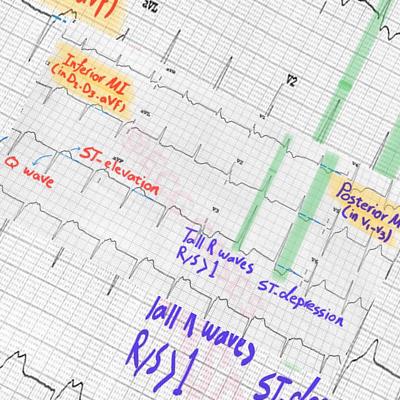 aVF)
aVL
V2
Inferior MI
(in D2-D3-aVf)
aVR
aVL
V2
V1
aVF
Q wave
ST-elevation
V3
V6
Posterior M
(in V1-V3)
Tall R waves
R/S>1
ST-depression
Tall R waves
R/S>1
ST-de